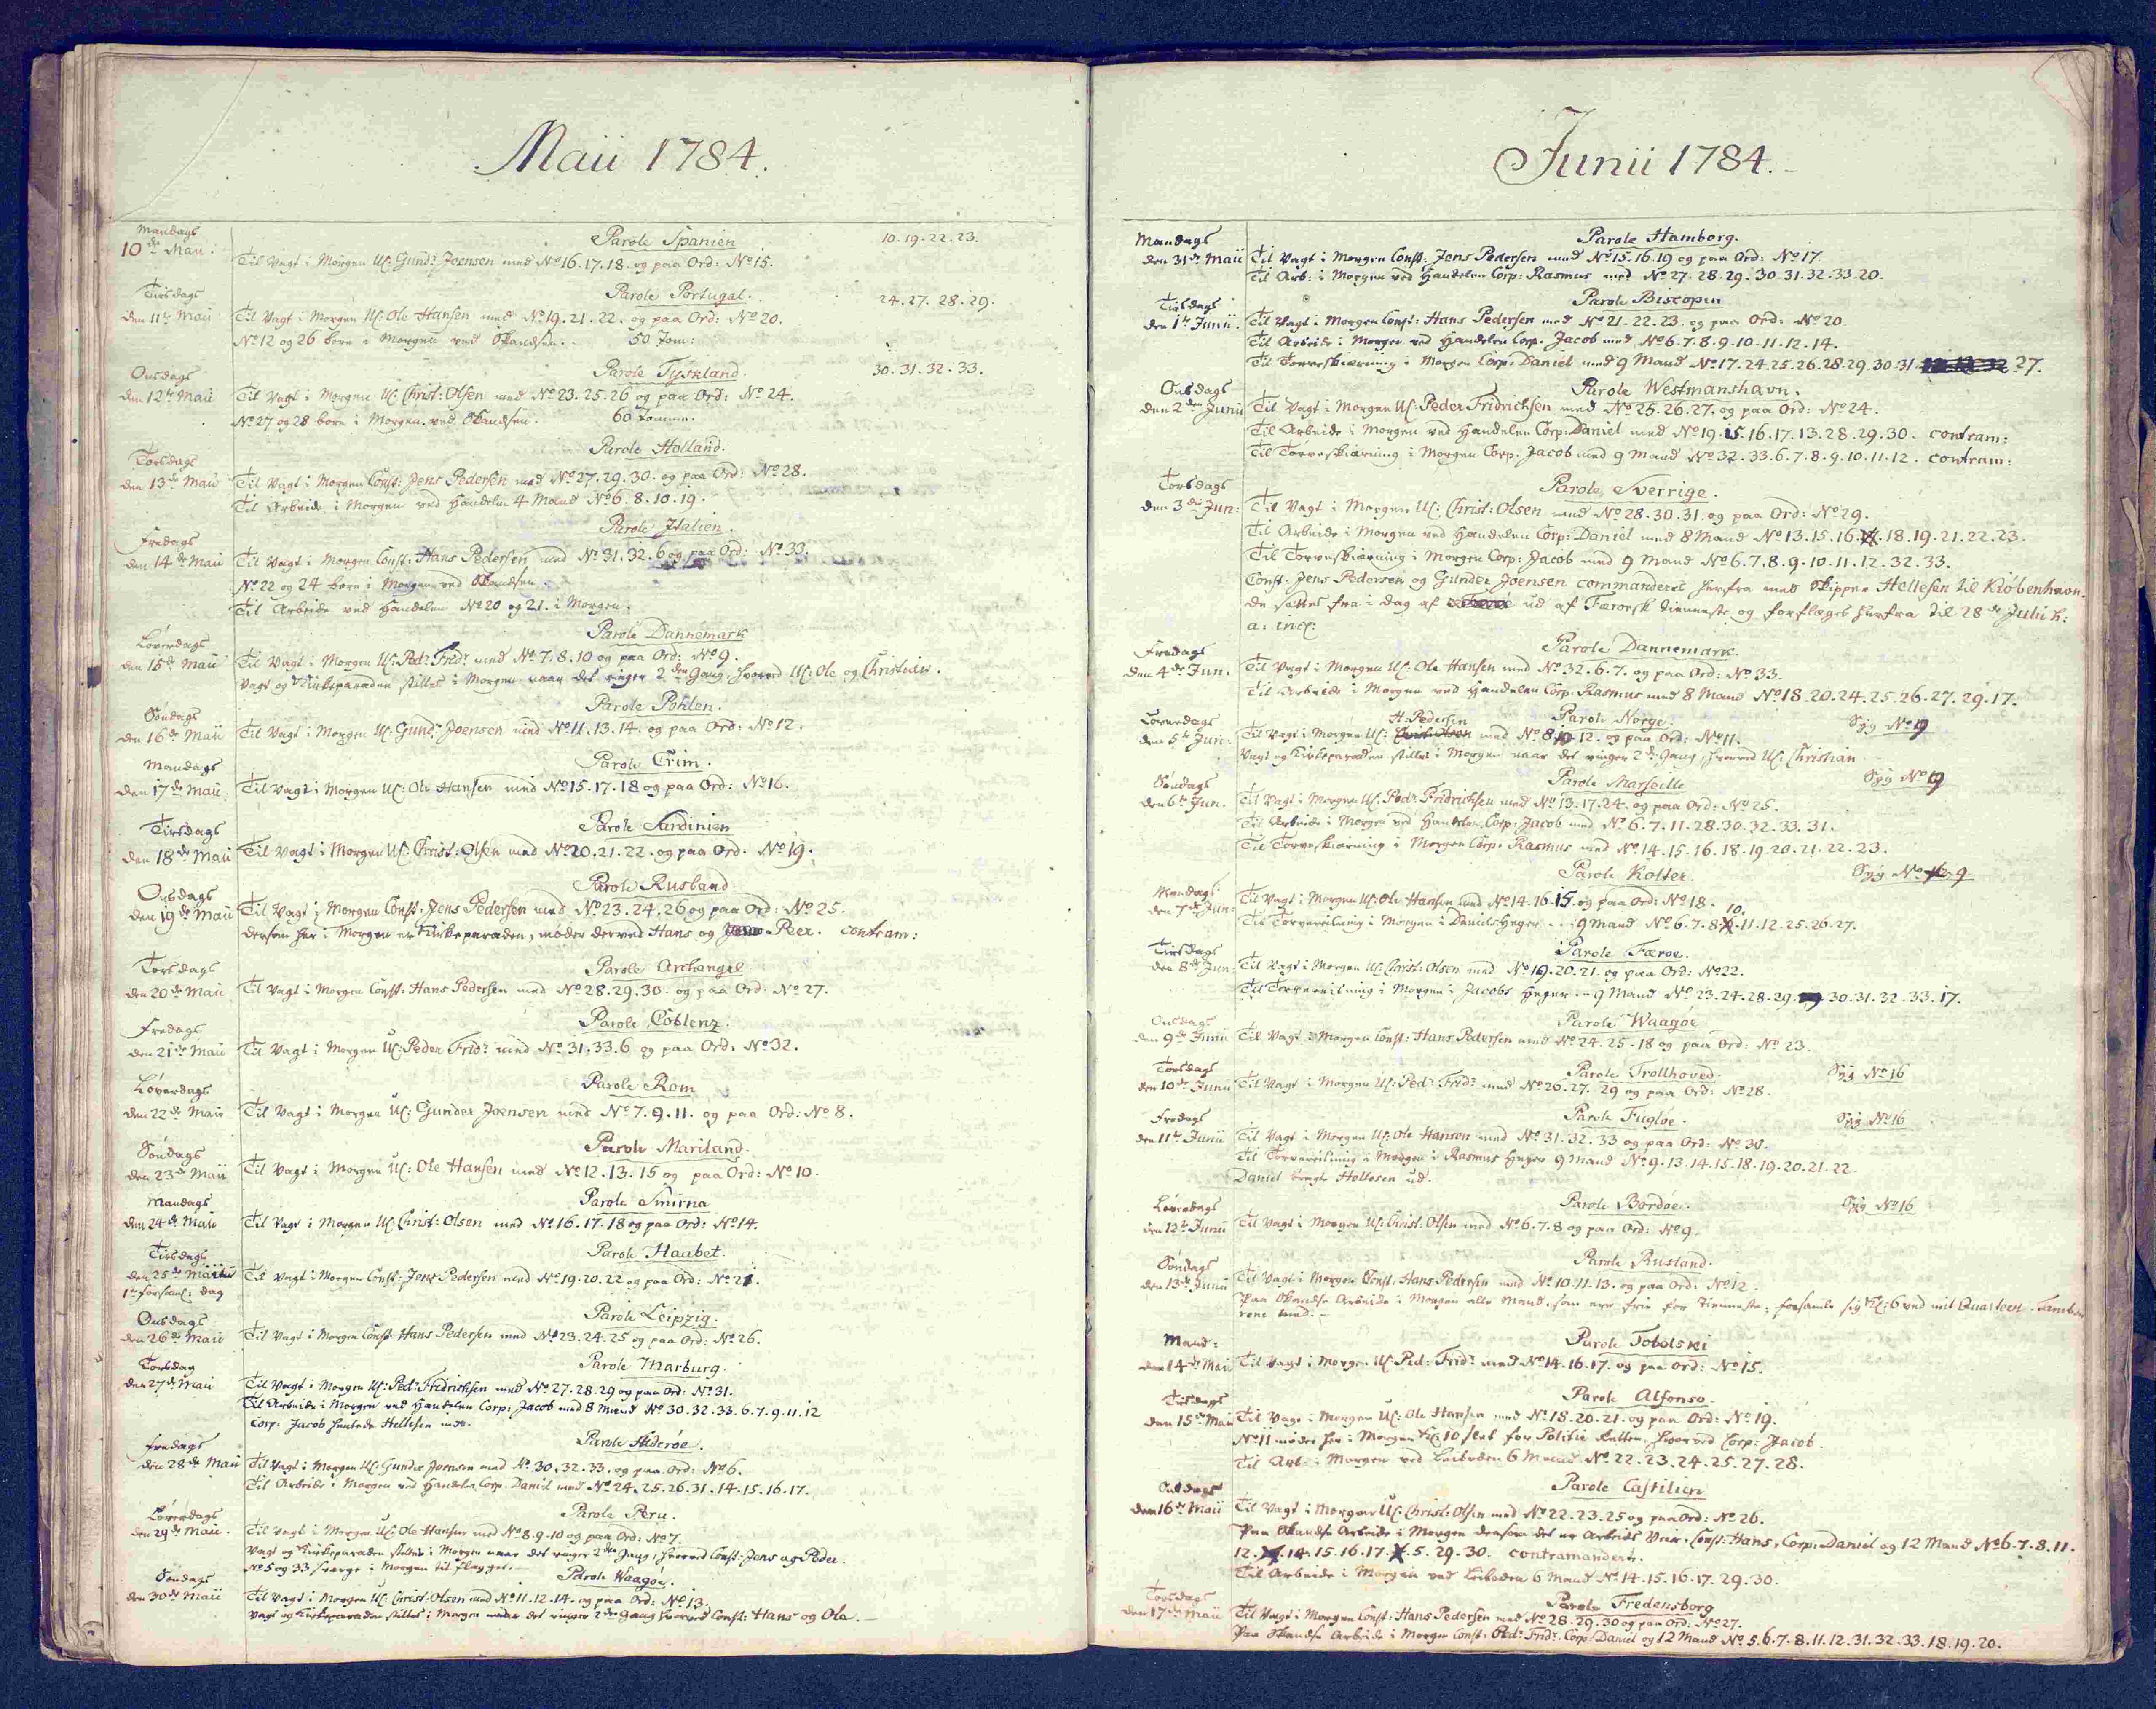 Maii 1784.
Mandags Parole Spanien 10.19.22.23.
10de Maii. Til Vagt i Morgen Uc: Gund: Joensen med No 16.17.18. og paa Ord: No 15.
Tirsdags Parole Portugal. 24.27.28.29.
den 11te Maii Til Vagt i Morgen Uc: Ole Hansen med No 19.21.22. og paa Ord: No 20.
No 12 og 26 bore i Morgen ved Skandsen. 50 Tom:
Onsdags Parole Tyskland. 30.31.32.33.
den 12te Maii Til Vagt i Morgen Uc: Christ: Olsen med No 23.25.26 og paa Ord: No 24.
No 27 og 28 bore i Morgen ved Skandsen. 60 Tomme.
Torsdags Parole Holland.
den 13de Maii Til Vagt i Morgen Const: Jens Pedersen med No 27.29.30. og paa Ord: No 28.
Til Arbeide i Morgen ved Handelen 4 Mand No 6.8.10.19.
Fredags Parole Italien.
den 14de Maii Til Vagt i Morgen Const: Hans Pedersen med No 31.32.6 og paa Ord: No 33.
No 22 og 24 bore i Morgen ved Skandsen.
Til Arbeide ved Handelen No 20 og 21. i Morgen.
Løverdags Parole Dannemark
den 15de Maii Til Vagt i Morgen Uc: Ped: Frid: med No 7.8.10 og paa Ord: No 9.
Vagt og Kirkeparaden stilles i Morgen naar det ringer 2den Gang, hvorved Uc: Ole og Christian.
Søndags Parole Pohlen.
den 16de Maii Til Vagt i Morgen Uc: Gund: Joensen med No 11.13.14. og paa Ord: No 12.
Mandags Parole Crim.
den 17de Maii Til Vagt i Morgen Uc: Ole Hansen med No 15.17.18 og paa Ord: No 16.
Tirsdags Parole Sardinien
den 18de Maii Til Vagt i Morgen Uc: Christ: Olsen med No 20.21.22. og paa Ord: No 19.
Onsdags Parole Rusland
den 19de Maii Til Vagt i Morgen Const: Jens Pedersen med No 23.24.26 og paa Ord: No 25.
dersom her i Morgen er Kirkeparaden, møder derved Hans og Peer. contram:
Torsdags Parole Archangel
den 20de Maii Til Vagt i Morgen Const: Hans Pedersen med No 28.29.30. og paa Ord: No 27.
Fredags Parole Coblenz.
den 21de Maii Til Vagt i Morgen Uc: Peder Frid: med No 31.33.6 og paa Ord: No 32.
Løverdags Parole Rom
den 22de Maii Til Vagt i Morgen Uc: Gunder Joensen med No 7.9.11. og paa Ord: No 8.
Søndags Parole Mariland.
den 23de Maii Til Vagt i Morgen Uc: Ole Hansen med No 12.13.15 og paa Ord: No 10.
Mandags Parole Smirna
den 24de Maii Til Vagt i Morgen Uc: Christ: Olsen med No 16.17.18 og paa Ord: No 14.
Tirsdags Parole Haabet.
den 25de Maii Til Vagt i Morgen Const: Jens Pedersen med No 19.20.22 og paa Ord: No 21.
1te forsaml: dag
Onsdags Parole Leipzig.
den 26de Maii Til Vagt i Morgen Const: Hans Pedersen med No 23.24.25 og paa Ord: No 26.
Torsdag Parole Marburg.
den 27de Maii Til Vagt i Morgen Uc: Ped: Fridrichsen med No 27.28.29 og paa Ord: No 31.
Til Arbeide i Morgen ved Handelen Corp: Jacob med 8 Mand No 30.32.33.6.7.9.11.12
Corp: Jacob hentede Hellesen ind.
Fredags Parole Suderøe.
den 28de Maii Til Vagt i Morgen Uc: Gunder Joensen med No 30.32.33. og paa Ord: No 6.
Til Arbeide i Morgen ved Handelen Corp: Daniel med No 24.25.26.31.14.15.16.17.
Løverdags Parole Peru.
den 29de Maii. Til Vagt i Morgen Uc: Ole Hansen med No 8.9.10 og paa Ord: No 7.
Vagt og Kirkeparaden stilles i Morgen naar det ringer 2den Gang, hvorved Const: Jens og Peder.
No 5 og 33 sværge i Morgen til flagget.
Søndags Parole Waagøe.
den 30de Maii Til Vagt i Morgen Uc: Christ: Olsen med No 11.12.14. og paa Ord: No 13.
Vagt og Kirkeparaden stilles i Morgen naar det ringer 2den Gang hvorved Const: Hans og Ole.
Junii 1784.
Mandags Parole Hamborg.
den 31de Maii Til Vagt i Morgen Const: Jens Pedersen med No 15.16.19 og paa Ord: No 17.
Til Arb: i Morgen ved Handelen Corp: Rasmus med No 27.28.29.30.31.32.33.20.
Tirsdags Parole Biscopin
den 1te Junii. Til Vagt i Morgen Const: Hans Pedersen med No 21.22.23. og paa Ord: No 20
Til Arbeide i Morgen ved Handelen Corp. Jacob med No 6.7.8.9.10.11.12.14.
Til Torveskiæring i Morgen Corp: Daniel med 9 Mand No 17.24.25.26.28.29.30.31 27.
Onsdags Parole Westmanshavn.
den 2den Junii Til Vagt i Morgen Uc: Peder Fridrichsen med No 25.26.27. og paa Ord: No 24.
Til Arbeide i Morgen ved Handelen Corp: Daniel med No 19.15.16.17.13.28.29.30. contram:
Til Torveskiæring i Morgen Corp. Jacob med 9 Mand No 32.33.6.7.8.9.10.11.12. contram:
Torsdags Parole Sverrige.
den 3die Jun: Til Vagt i Morgen Uc: Christ: Olsen med No 28.30.31. og paa Ord: No 29.
Til Arbeide i Morgen ved Handelen Corp: Daniel med 8 Mand No 13.15.16.18.19.21.22.23.
Til Torveskiæring i Morgen Corp: Jacob med 9 Mand No 6.7.8.9.10.11.12.32.33.
Const: Jens Pedersen og Gunder Joensen commanderet herfra med Skipper Hellesen til Kiøbenhavn.
de sættes fra i dag af ud af Færorsk Tienneste og forflæges herfra til 28de Julii h:
a: incl:
Fredags Parole Dannemark.
den 4de Jun. Til Vagt i Morgen Uc: Ole Hansen med No 32.6.7. og paa Ord: No 33.
Til Arbeide i Morgen ved Handelen Corp: Rasmus med 8 Mand No 18.20.24.25.26.27.29.17.
Løverdags H: Pedersen Parole Norge. Syg No 9
den 5te Jun: Til Vagt i Morgen Uc: Christ: Olsen med No 8.10.12. og paa Ord: No 11.
Vagt og Kirkeparaden stilles i Morgen naar det ringer 2de Gang, hvorved Uc: Christian
Søndags Parole Marseille Syg No 9
den 6te Jun. Til Vagt i Morgen Uc: Ped: Fridrichsen med No 13.17.24. og paa Ord: No 25.
Til Arbeide i Morgen ved Handelen Corp: Jacob med No 6.7.11.28.30.32.33.31.
Til Torveskiæring i Morgen Corp: Rasmus med No 14.15.16.18.19.20.21.22.23.
Parole Kolter. Syg No 9
Mandags
den 7de Jun: Til Vagt i Morgen Uc: Ole Hansen med No 14.16.15. og paa Ord: No 18.
Til Torvereilning i Morgen i Daniels 9 Mand No 6.7.8.10.11.12.25.26.27.
Tirsdags Parole Færoe.
den 8de Jun: Til Vagt i Morgen Uc: Christ: Olsen med No 19.20.21. og paa Ord: No 22.
Til Torvereilning i Morgen i Jacobs 9 Mand No 23.24.28.29.30.31.32.33.17.
Onsdags Parole Waagøe.
den 9de Junii Til Vagt i Morgen Const: Hans Pedersen med No 24.25.18 og paa Ord: No 23.
Torsdags Parole Trollhoved. Syg No 16
den 10de Junii Til Vagt i Morgen Uc: Ped: Frid: med No 26.27.29 og paa Ord: No 28.
Fredags Parole Fugløe. Syg No 16
den 11te Junii Til Vagt i Morgen Uc: Ole Hansen med No 31.32.33 og paa Ord: No 30.
Til Torvereilning i Morgen i Rasmus 9 Mand No 9.13.14.15.18.19.20.21.22
Daniel bragte Hellesen ud.
Løverdags Parole Bordøe. Syg No 16
den 12te Junii Til Vagt i Morgen Uc: Christ: Olsen med No 6.7.8 og paa Ord: No 9
Søndags Parole Rusland.
den 13de Junii Til Vagt i Morgen Const: Hans Pedersen med No 10.11.13. og paa Ord: No 12.
Paa Skandse Arbeide i Morgen alle Mand, som ere frie for Tienneste, forsamle sig Kl: 6 ved mit Quarteer. Tambou
rene med.
Mand: Parole Tobolski
den 14de Maii Til Vagt i Morgen Uc: Ped: Frid: med No 14.16.17. og paa Ord: No 15.
Tirsdags Parole Alfonso.
den 15de Maii Til Vagt i Morgen Uc: Ole Hansen med No 18.20.21. og paa Ord: No 19.
No 11 møder her i Morgen Kl: 10 slet for Politie Retten, hvorved Corp: Jacob.
Til Arb: i Morgen ved 6 Mand No 22.23.24.25.27.28.
Onsdags Parole Castilien
den 16de Maii Til Vagt i Morgen Uc: Christ: Olsen med No 22.23.25 og paa Ord: No 26.
Paa Skandse Arbeide i Morgen dersom det er Arbeids Veir, Const: Hans, Corp: Daniel og 12 Mand No 6.7.8.11.
12.14.15.16.17.5.29.30. contramanderet.
Til Arbeide i Morgen ved 6 Mand No 14.15.16.17.29.30.
Torsdags Parole Fredensborg
den 17de Maii Til Vagt i Morgen Const: Hans Pedersen med No 28.29.30 og paa Ord: No 27.
Paa Skandse Arbeide i Morgen Const: Ped: Frid: Corp: Daniel og 12 Mand No 5.6.7.8.11.12.31.32.33.18.19.20.